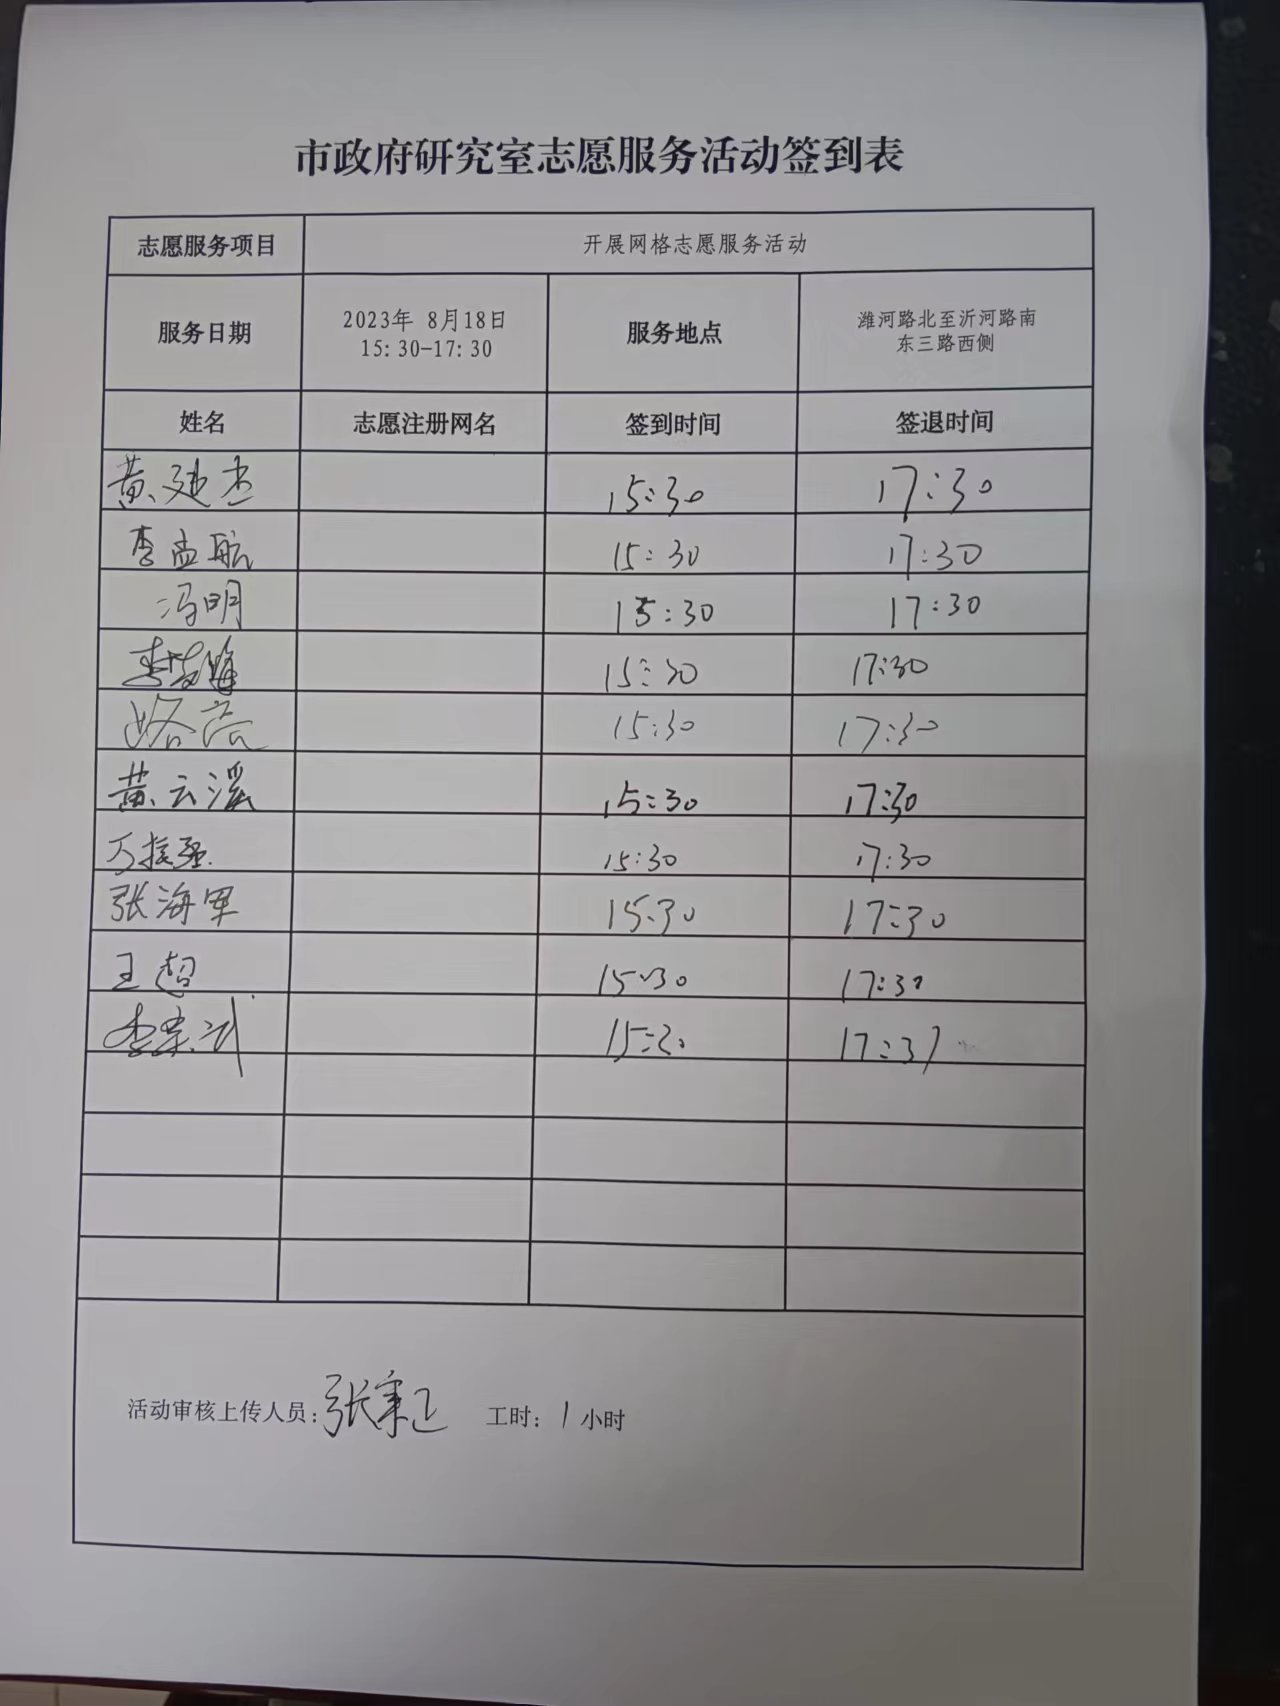 市政府研究室志愿服务活动签到表
志愿服务项目 开展网格志愿服务活动
服务日期 2023年 8月18日 15:30-17:30 服务地点 潍河路北至沂河路南东三路西侧
姓名 志愿注册网名 签到时间 签退时间
黄建杰 15:30 17:30
李孟航 15:30 17:30
冯明 15:30 17:30
李 15:30 17:30
路亮 15:30 17:30
黄云溪 15:30 17:30
万 强 15:30 17:30
张海军 15:30 17:30
王超 15:30 17:30
李 17:3
活动审核上传人员:张秉正 工时: 1 小时